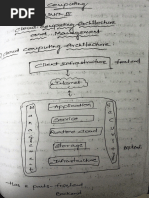 Computing
Unit II
Cloud Computing Architecture
and Management
Cloud computing Architecture:
Client infrastructure
Frontend
Internet
Application
Service
Runtime cloud
Storage
Infrastructure
Management
Security
Backend